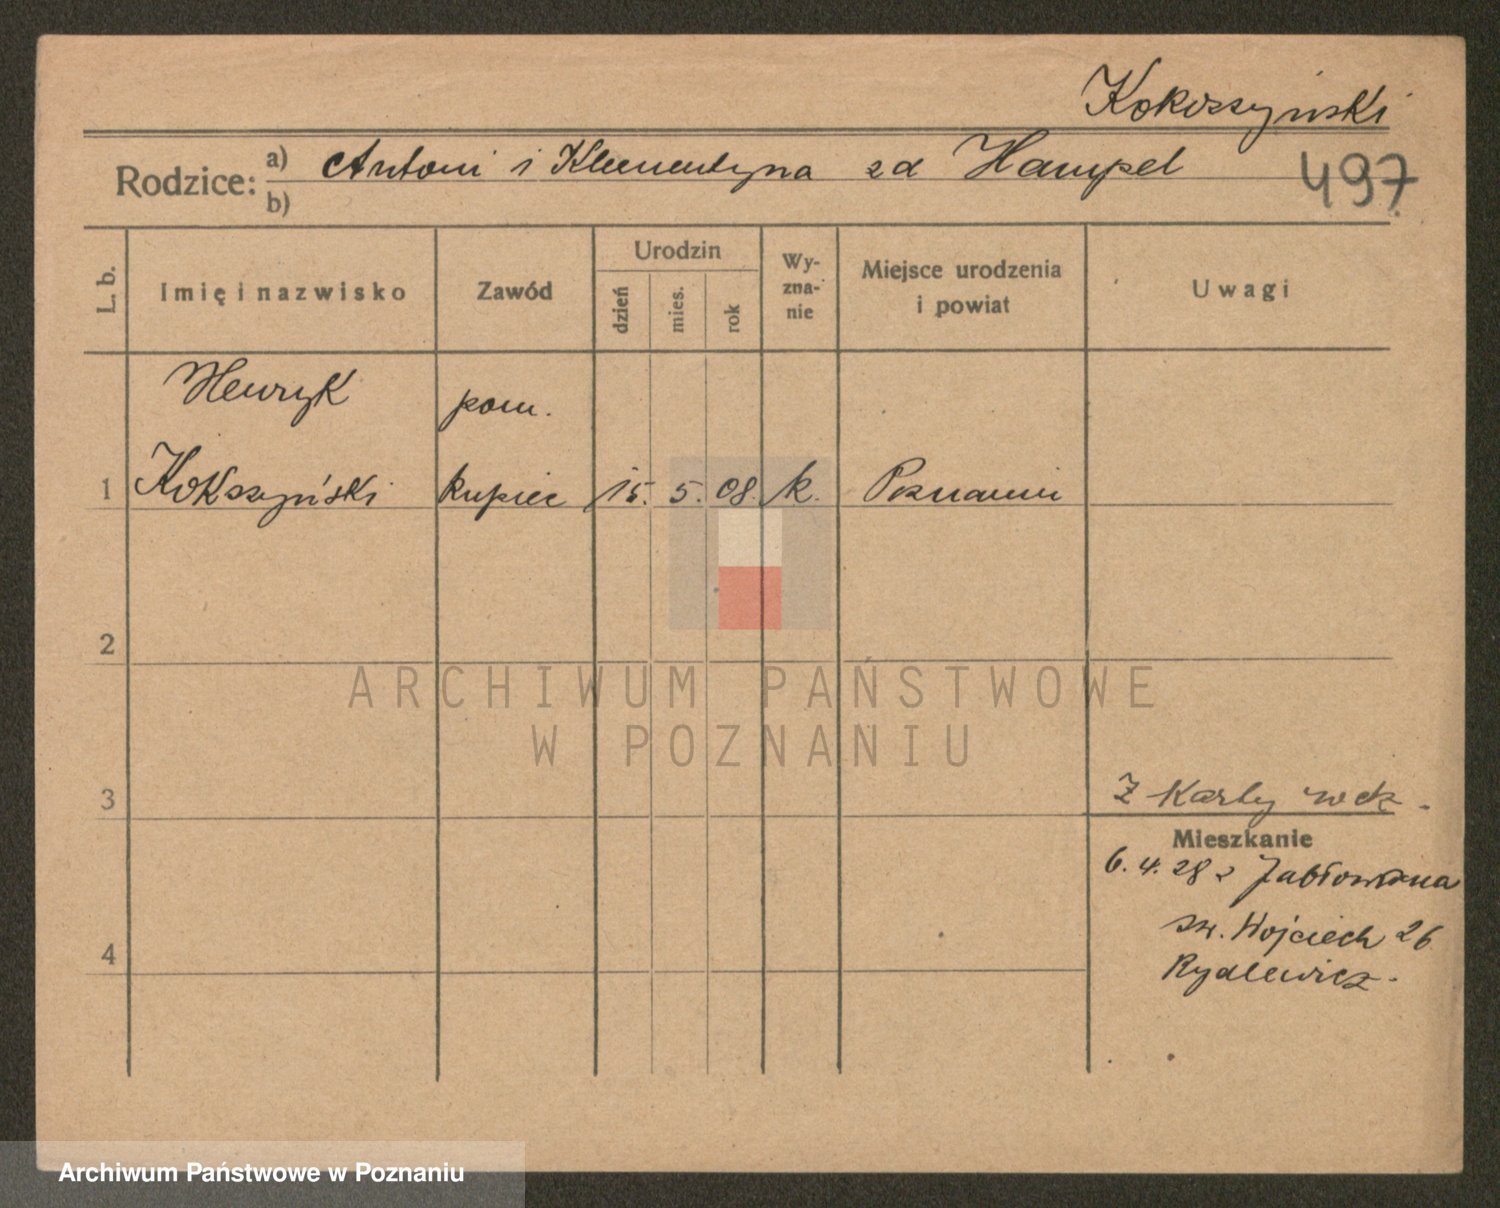 Kokoszyński
Rodzice: a) Antoni i Klementyna zd Hampel
b)
497
L. b.
Imię i nazwisko
Zawód
Urodzin
dzień
mies.
rok
Wy-
zna-
nie
Miejsce urodzenia
i powiat
Uwagi
Henryk pom.
1 Kokoszyński kupiec 15. 5. 08. k. Poznaniu
2
ARCHIWUM PAŃSTWOWE
W POZNANIU
3
Z Karty
Mieszkanie
6.4.28 z
św. Wojciech 26
Rydlewicz.
4
Archiwum Państwowe w Poznaniu